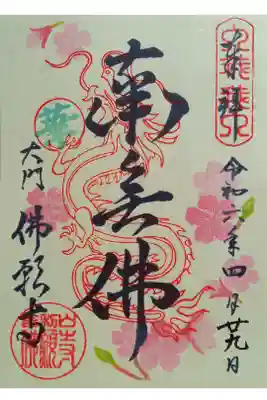 奉拝
令和六年四月廿九日
南無佛
大門
佛願寺